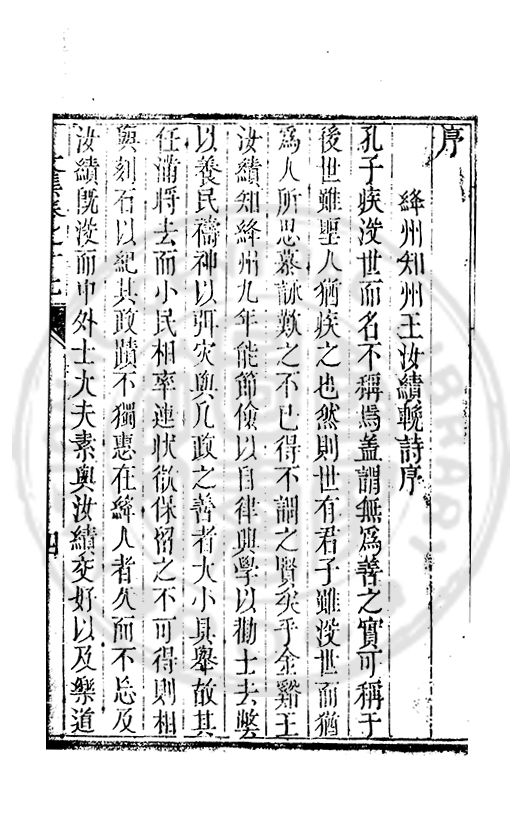 序
絳州知州王汝績輓詩序
孔子疾沒世而名不稱焉蓋謂無爲善之實可稱于
後世雖聖人猶疾之也然則世有君子雖沒世而猶
爲人所思慕詠歎之不已得不謂之賢矣乎金谿王
汝績知絳州九年能節儉以自律興學以勸士去弊
以養民禱神以弭灾與凡政之善者大小具舉故其
任滿將去而小民相率連狀欲保畱之不可得則相
與刻石以紀其政蹟不獨惠在絳人者久而不忘及
汝績旣沒而中外士大夫素與汝績交好以及樂道
文集卷之十七
四